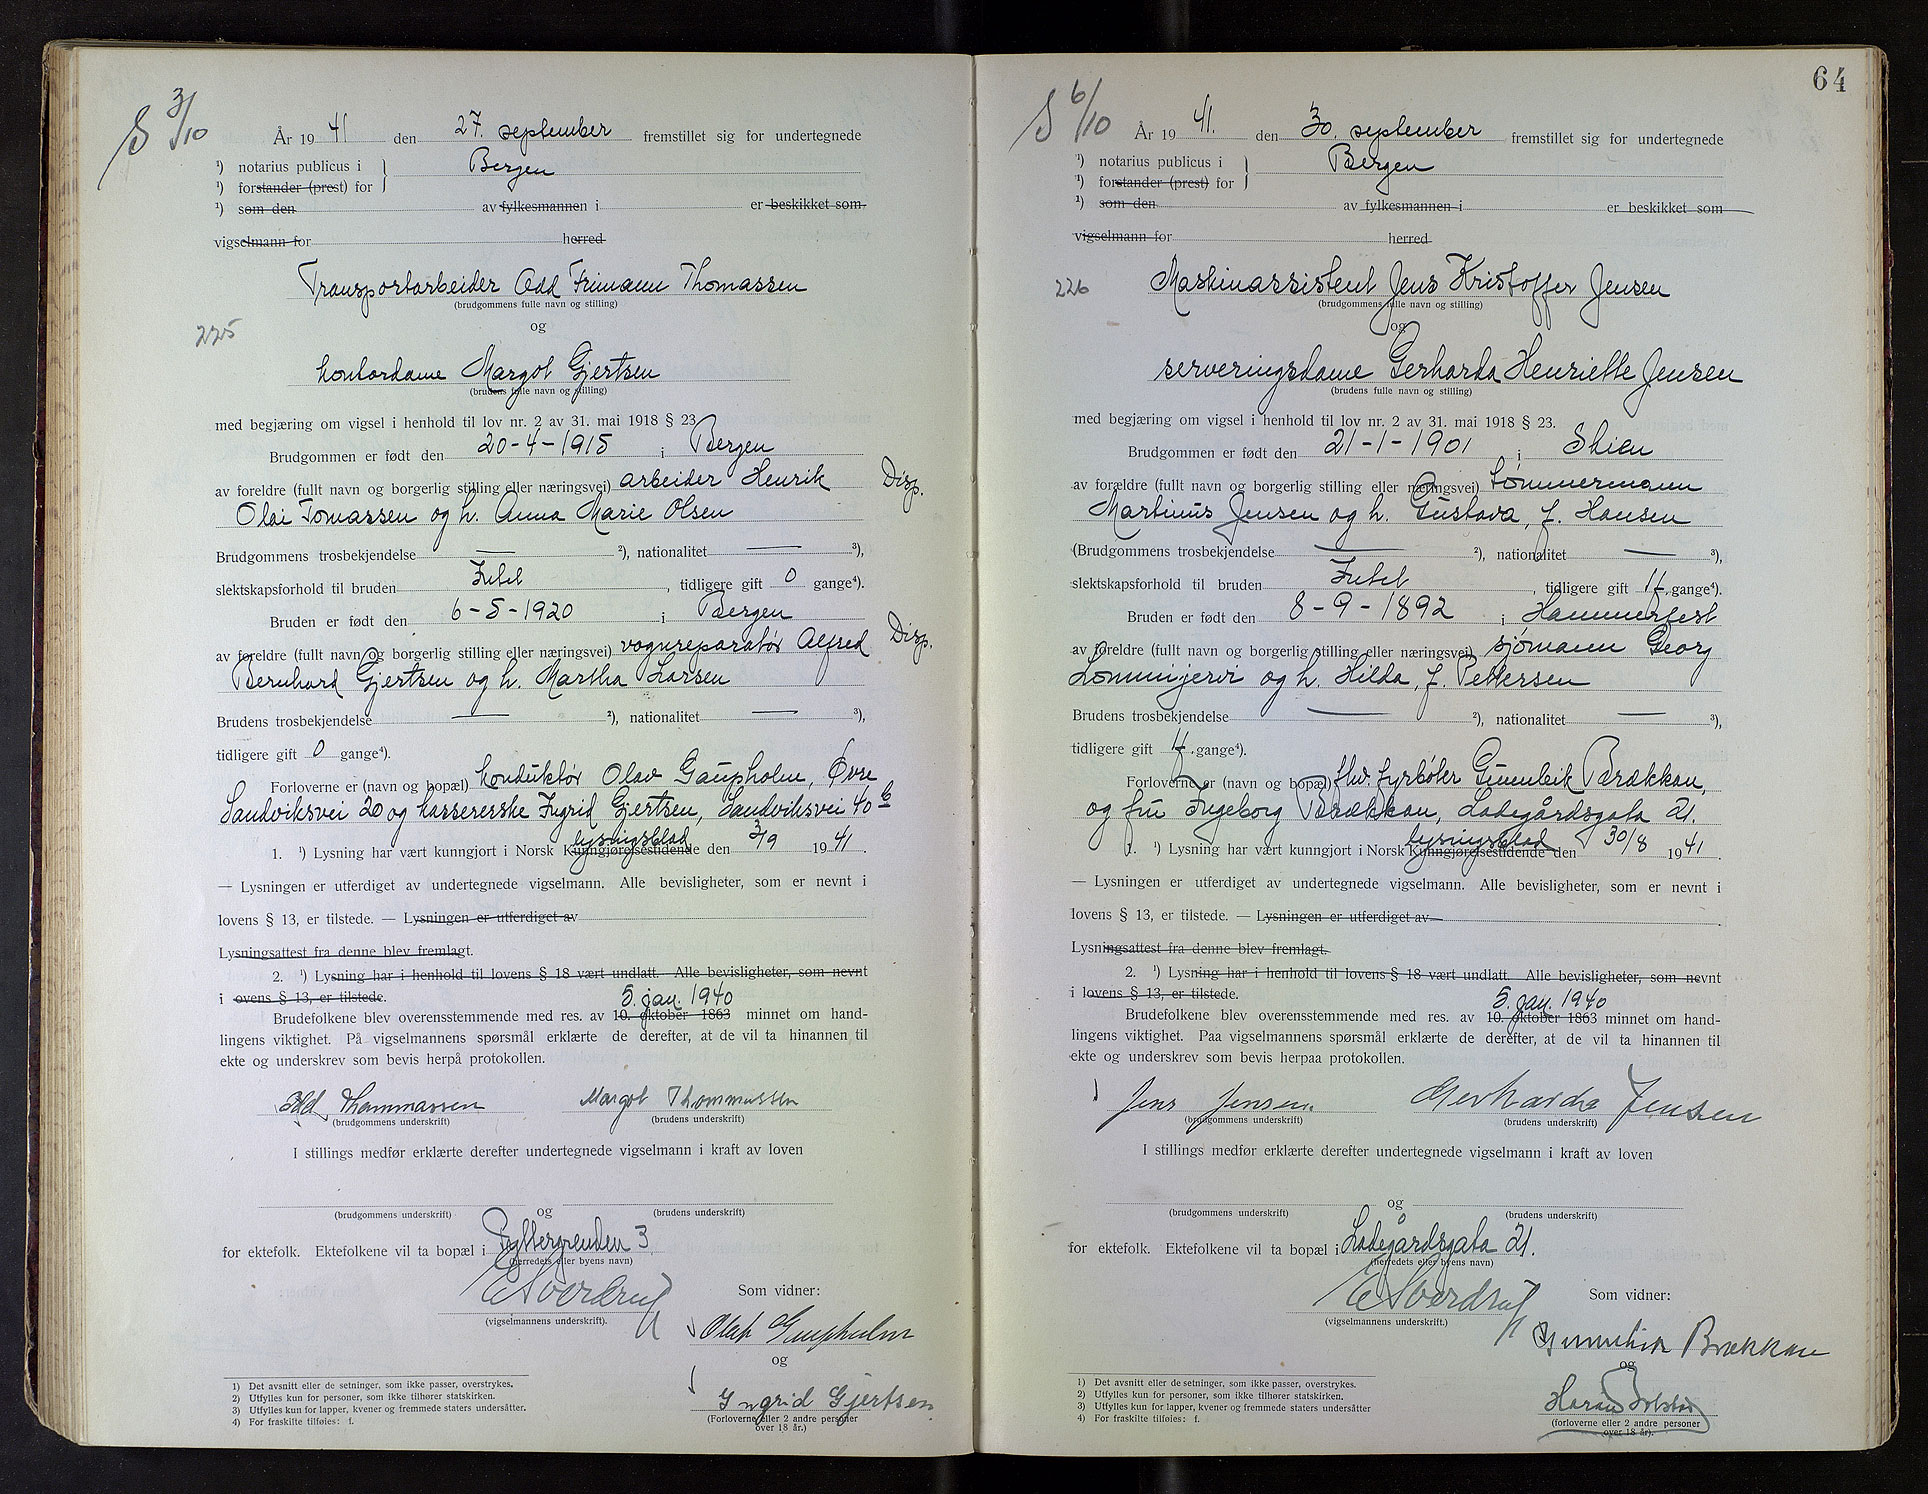 S 3/10
År 19 41 den 27. september fremstillet sig for undertegnede
¹) notarius publicus i } Bergen
¹) forstander (prest) for
¹) som den av fylkesmannen i er beskikket som
vigselmann for herred
Transportarbeider Odd Frimann Thomassen
(brudgommens fulle navn og stilling)
og
225
kontordame Margot Gjertsen
(brudens fulle navn og stilling)
med begjæring om vigsel i henhold til lov nr. 2 av 31. mai 1918 § 23.
Brudgommen er født den 20-4-1915 i Bergen
av foreldre (fullt navn og borgerlig stilling eller næringsvei) arbeider Henrik Disp.
Olai Tomassen og h. Anna Marie Olsen
Brudgommens trosbekjendelse — ²), nationalitet — ³),
slektskapsforhold til bruden Intet, tidligere gift 0 gange⁴).
Bruden er født den 6-5-1920 i Bergen
av foreldre (fullt navn og borgerlig stilling eller næringsvei) vognreparatør Alfred Disp.
Bernhard Gjertsen og h. Martha Larsen
Brudens trosbekjendelse — ²), nationalitet — ³),
tidligere gift 0 gange⁴).
Forloverne er (navn og bopæl) konduktør Olav Gaupholm, Øvre
Sandviksvei 20 og kassererske Ingrid Gjertsen, Sandviksvei 40 b
lysingsblad
1. ¹) Lysning har vært kunngjort i Norsk Kunngjørelsestidende den 3/9 19 41.
— Lysningen er utferdiget av undertegnede vigselmann. Alle bevisligheter, som er nevnt i
lovens § 13, er tilstede. — Lysningen er utferdiget av
Lysningsattest fra denne blev fremlagt.
2. ¹) Lysning har i henhold til lovens § 18 vært undlatt. Alle bevisligheter, som nevnt
i ovens § 13, er tilstede.
5. jan. 1940
Brudefolkene blev overensstemmende med res. av 10. oktober 1863 minnet om hand-
lingens viktighet. På vigselmannens spørsmål erklærte de derefter, at de vil ta hinannen til
ekte og underskrev som bevis herpå protokollen.
Odd Thommassen Margot Thommassen
(brudgommens underskrift) (brudens underskrift)
I stillings medfør erklærte derefter undertegnede vigselmann i kraft av loven
og
(brudgommens underskrift) (brudens underskrift)
for ektefolk. Ektefolkene vil ta bopæl i Pyttergrenden 3
(herredets eller byens navn)
Som vidner:
(vigselmannens underskrift).
Olaf Gaupholm
og
Ingrid Gjertsen
(Forloverne eller 2 andre personer
over 18 år.)
1) Det avsnitt eller de setninger, som ikke passer, overstrykes.
2) Utfylles kun for personer, som ikke tilhører statskirken.
3) Utfylles kun for lapper, kvener og fremmede staters undersåtter.
4) For fraskilte tilføies: f.
64
S 6/10
År 19 41. den 30. september fremstillet sig for undertegnede
¹) notarius publicus i } Bergen
¹) forstander (prest) for
¹) som den av fylkesmannen i er beskikket som
vigselmann for herred
226
Maskinassistent Jens Kristoffer Jensen
(brudgommens fulle navn og stilling)
og
serveringsdame Gerharda Henriette Jensen
(brudens fulle navn og stilling)
med begjæring om vigsel i henhold til lov nr. 2 av 31. mai 1918 § 23.
Brudgommen er født den 21-1-1901 i Skien
av forældre (fullt navn og borgerlig stilling eller næringsvei) tømmermann
Martinus Jensen og h. Gustava, f. Hansen
(Brudgommens trosbekjendelse — ²), nationalitet — ³),
slektskapsforhold til bruden Intet, tidligere gift 1 f. gange⁴).
Bruden er født den 8-9-1892 i Hammerfest
av foreldre (fullt navn og borgerlig stilling eller næringsvei) sjømann Georg
Lomminjervi og h. Hilda, f. Pettersen
Brudens trosbekjendelse — ²), nationalitet — ³),
tidligere gift 1 f. gange⁴).
Forloverne er (navn og bopæl) fhv. fyrbøter Gunnleik Brækkan,
og fru Ingeborg Brækkan, Ladegårdsgata 21.
lysingsblad
1. ¹) Lysning har vært kunngjort i Norsk Kunngjørelsestidende den 30/8 19 41.
— Lysningen er utferdiget av undertegnede vigselmann. Alle bevisligheter, som er nevnt i
lovens § 13, er tilstede. — Lysningen er utferdiget av
Lysningsattest fra denne blev fremlagt.
2. ¹) Lysning har i henhold til lovens § 18 vært undlatt. Alle bevisligheter, som nevnt
i lovens § 13, er tilstede.
5. jan. 1940
Brudefolkene blev overensstemmende med res. av 10. oktober 1863 minnet om hand-
lingens viktighet. Paa vigselmannens spørsmål erklærte de derefter, at de vil ta hinannen til
ekte og underskrev som bevis herpaa protokollen.
Jens Jensen. Gerharda Jensen
(brudgommens underskrift) (brudens underskrift)
I stillings medfør erklærte derefter undertegnede vigselmann i kraft av loven
og
(brudgommens underskrift) (brudens underskrift)
for ektefolk. Ektefolkene vil ta bopæl i Ladegårdsgata 21.
(herredets eller byens navn)
Som vidner:
(vigselmannens underskrift.)
Gunnleik Brækkan
og
(forloverne eller 2 andre personer
over 18 år).
1) Det avsnitt eller de setninger, som ikke passer, overstrykes.
2) Utfylles kun for personer, som ikke tilhører statskirken.
3) Utfylles kun for lapper, kvener og fremmede staters undersåtter
4) For fraskilte tilføies: f.